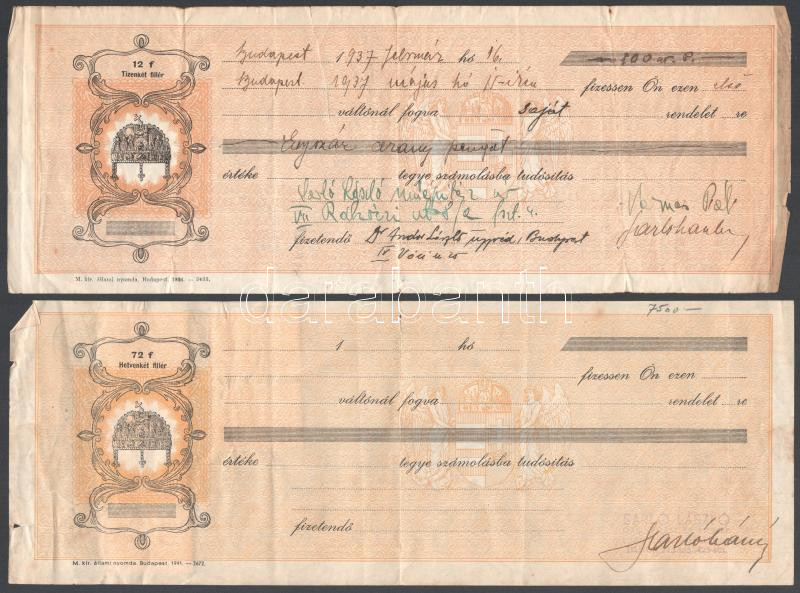 12 f
Tizenkét fillér
Budapest 1937 február hó 16.
Budapest 1937 május hó 15-én fizessen Ön ezen első
váltónál fogva saját rendelet re
Egyszáz arany pengőt
értéke tegye számolásba tudósítás
László
VII Rákóczi
fizetendő Dr Andor László ügyvéd, Budapest
IV Váci u
Pál
M. kir. állami nyomda. Budapest.
darabanth
7500—
72 f
Hetvenkét fillér
1 hó
fizessen Ön ezen
váltónál fogva rendelet re
értéke tegye számolásba tudósítás
fizetendő
M. kir. állami nyomda. Budapest. 1941. — 2672.